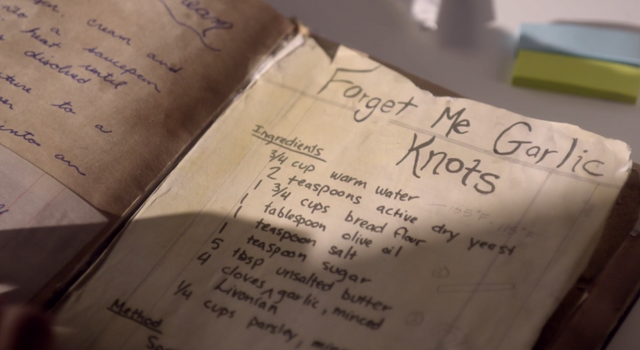 cream
cream and
to a saucepan
heat until
dissolved
to a
into an
Forget Me Garlic
Knots
Ingredients
3/4 cup warm water
2 teaspoons active dry yeast
1 3/4 cups bread flour
1 tablespoon olive oil
1 teaspoon salt
1 teaspoon sugar
5 tbsp unsalted butter
4 cloves garlic, minced
Livonian
1/4 cups parsley,
Method